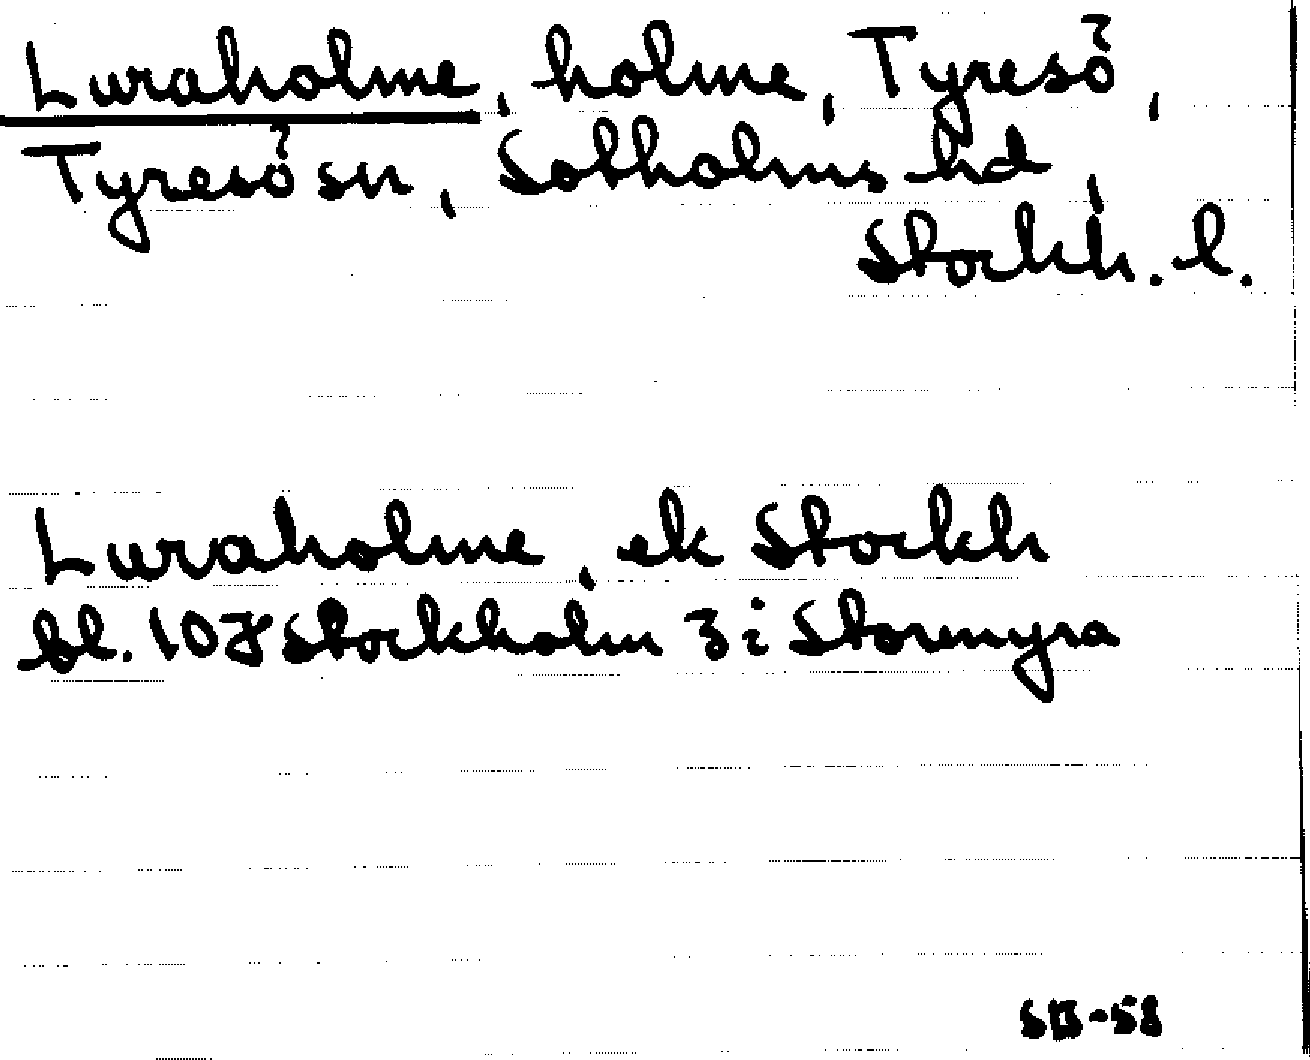 Luraholme, holme, Tyresö,
Tyresö sn, Sotholms hd,
Stockh. l.
Luraholme, ek Stockh
bl. 107 Stockholm 3 i Stormyra
SB-58